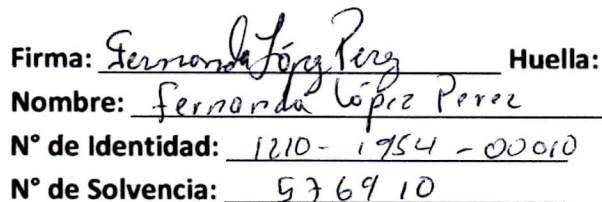 Firma: Fernanda López Perez Huella:
Nombre: Fernanda López Perez
N° de Identidad: 1210-1954-00010
N° de Solvencia: 576910